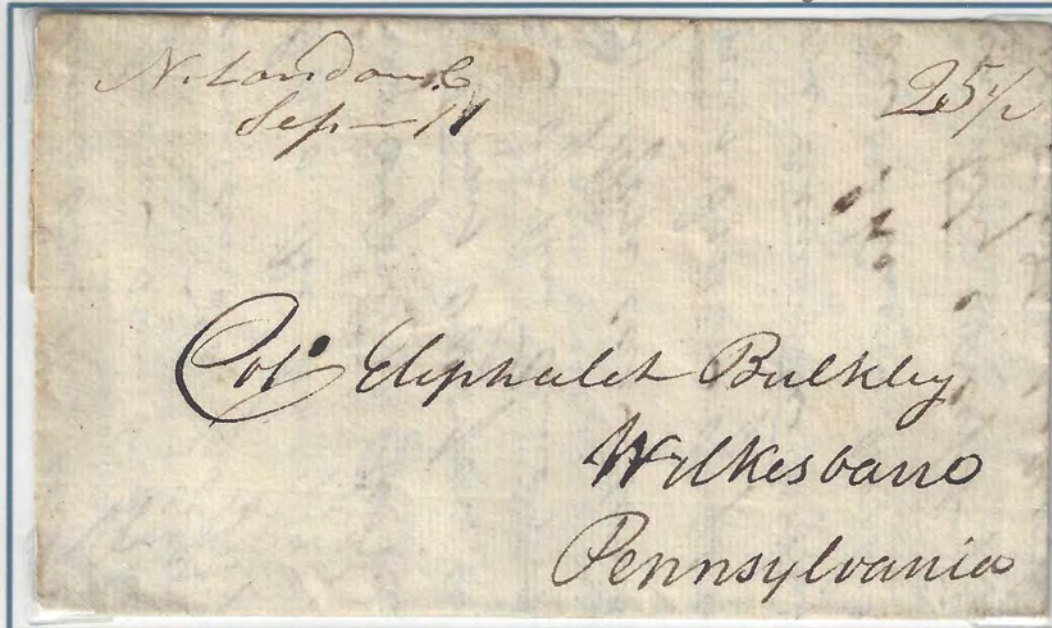 N. London C
Sep — 11
25 1/2
Col. Eliphalet Bulkley
Wilkesbarre
Pennsylvania